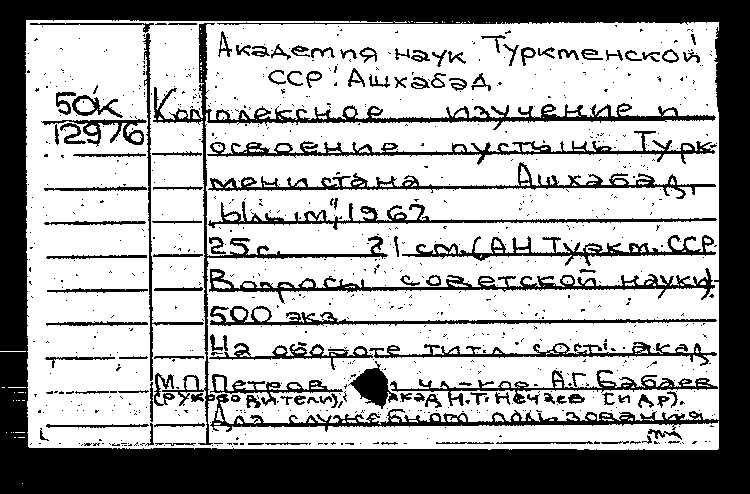 Академия наук Туркменской
ССР. Ашхабад.
50к
12976
Комплексное изучение и
освоение пустынь Турк-
менистана. Ашхабад,
"Ылым", 1967.
25 с. 21 см. (АН Туркм. ССР
Вопросы советской науки).
500 экз.
На обороте тит. л. сост.: акад.
М.П. Петров чл-кор. А.Г. Бабаев
(руководители), акад Н.Т. Нечаев [и др].
Для служебного пользования